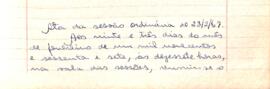 Ata da sessão ordinária de 23/2/67.
Aos vinte e três dias do mês
de fevereiro de mil novecentos
e sessenta e sete, às dezessete horas,
na sala das sessões, reuniu-se o